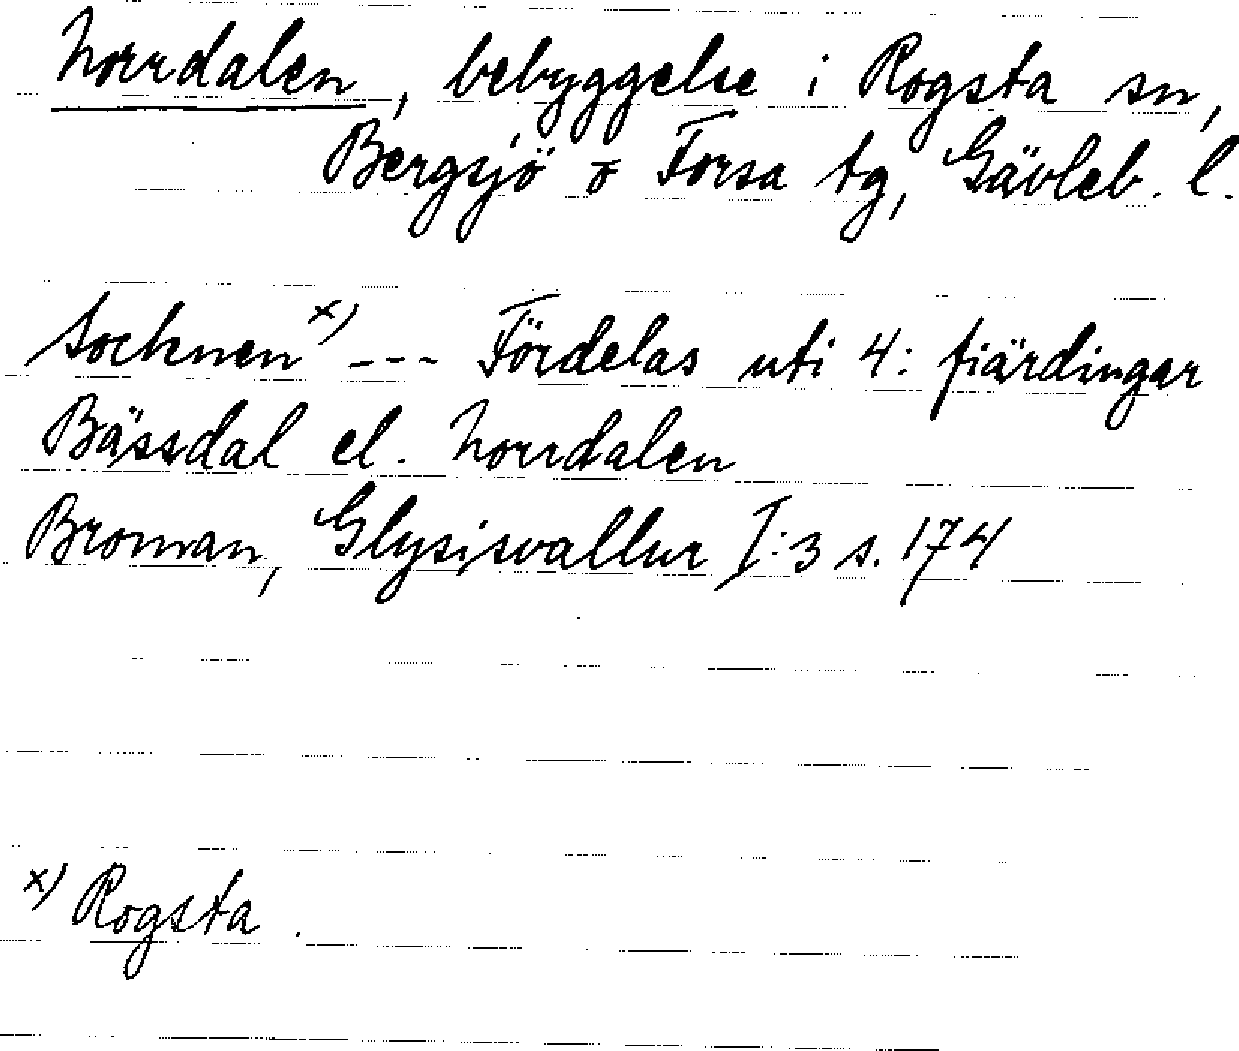 Norrdalen, bebyggelse i Rogsta sn,
Bergsjö o Forsa tg, Gävleb. l.
Sochnen x) --- Fördelas uti 4: fiärdingar
Bässdal el. Norrdalen
Broman, Glysisvallur I:3 s. 174
x) Rogsta.